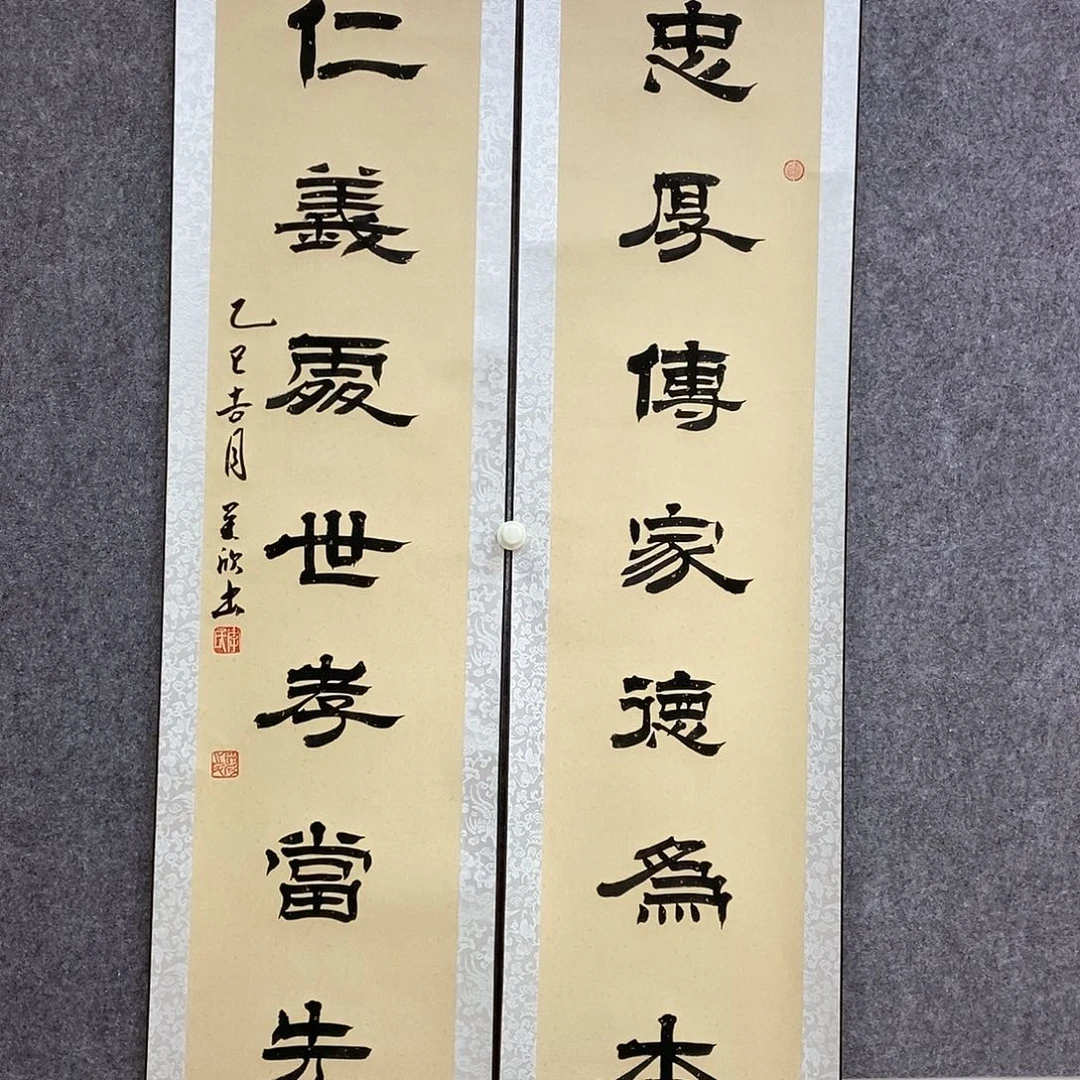 忠厚傳家德為本
仁義處世孝當先
乙巳吉月
欣書